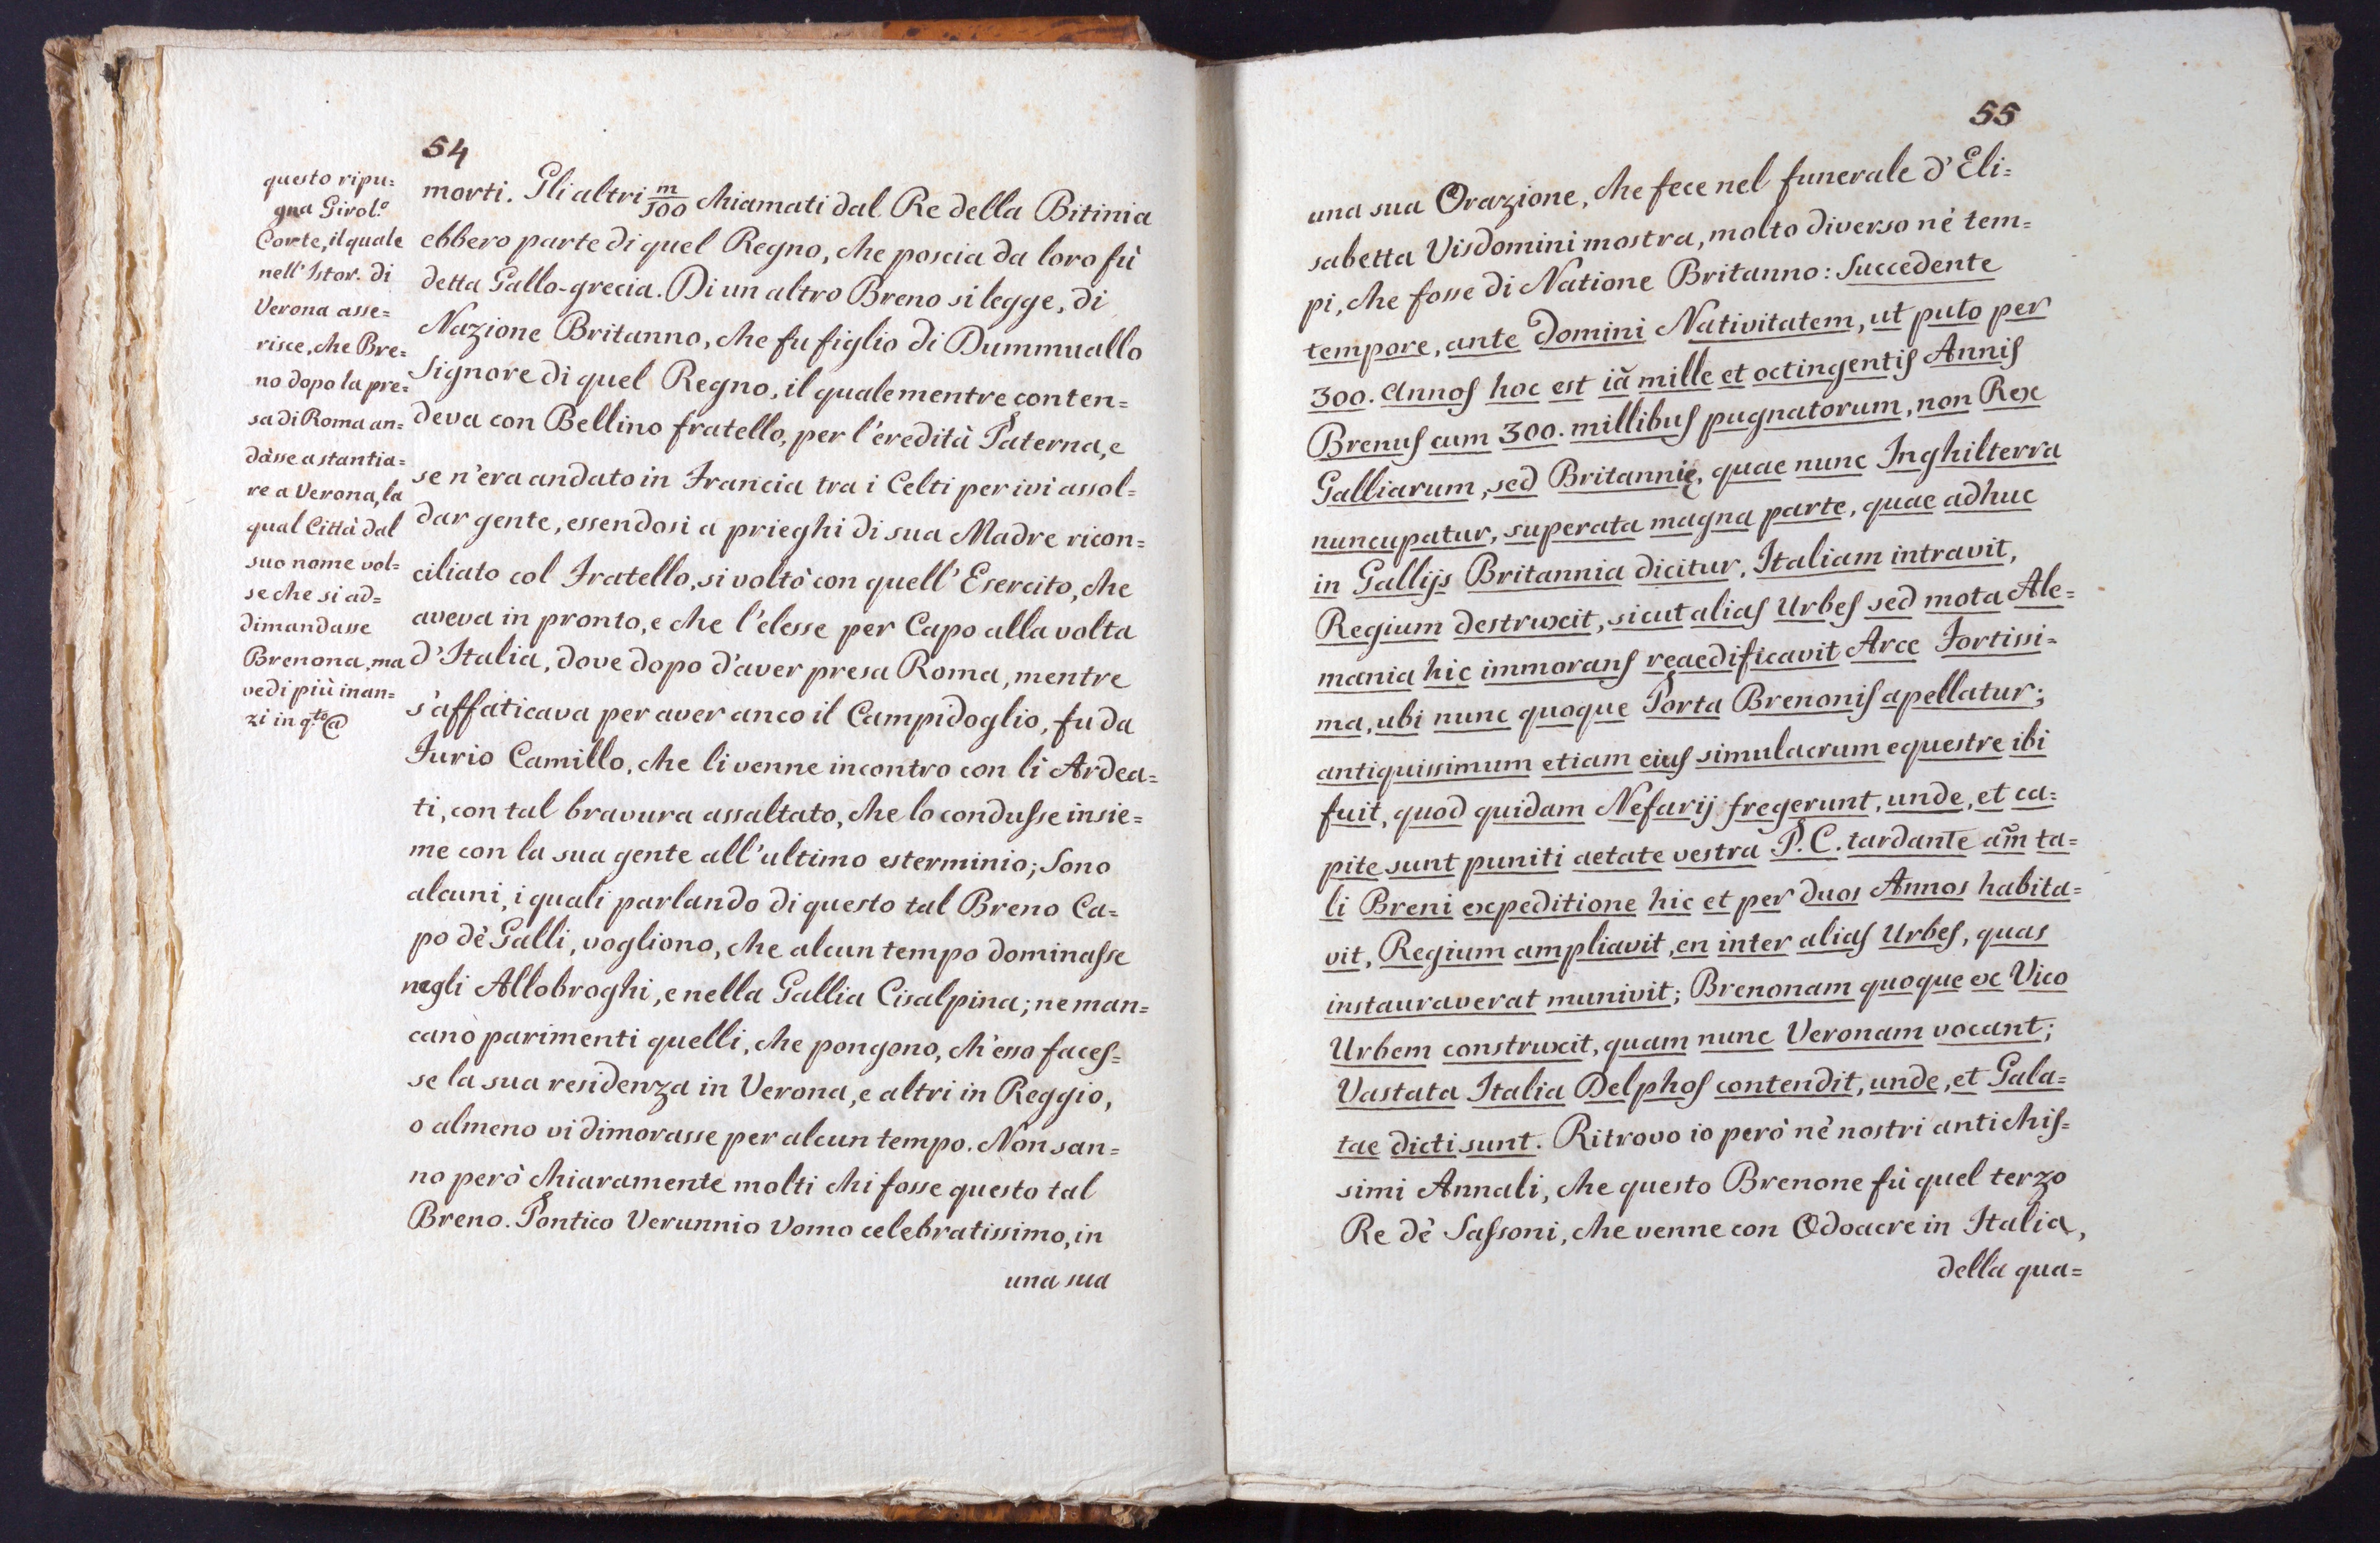 54
questo ripu=
gna Girol.º
Corte, il quale
nell'Istor. di
Verona asse=
risce, che Bre=
no dopo la pre=
sa di Roma an=
dàsse a stantia=
re a Verona, la
qual Città dal
suo nome vol=
se che si ad=
dimandasse
Brenona, ma
vedi più inan=
zi in q.to @
morti. Gli altri m/100 chiamati dal Re della Bitinia
ebbero parte di quel Regno, che poscia da loro fù
detta Gallo-grecia. Di un altro Breno si legge, di
Nazione Britanno, che fu figlio di Dummuallo
Signore di quel Regno, il quale mentre conten=
deva con Bellino fratello, per l'eredità Paterna, e
se n'era andato in Francia tra i Celti per ivi assol=
dar gente, essendosi a prieghi di sua Madre ricon=
ciliato col Fratello, si voltò con quell'Esercito, che
aveva in pronto, e che l'elesse per Capo alla volta
d'Italia, dove dopo d'aver presa Roma, mentre
s'affaticava per aver anco il Campidoglio, fu da
Furio Camillo, che li venne incontro con li Ardea=
ti, con tal bravura assaltato, che lo condusse insie=
me con la sua gente all'ultimo esterminio; Sono
alcuni, i quali parlando di questo tal Breno Ca=
po dè Galli, vogliono, che alcun tempo dominasse
negli Allobroghi, e nella Gallia Cisalpina; ne man=
cano parimenti quelli, che pongono, ch'esso faces=
se la sua residenza in Verona, e altri in Reggio,
o almeno vi dimorasse per alcun tempo. Non san=
no però chiaramente molti chi fosse questo tal
Breno. Pontico Verunnio Vomo celebratissimo, in
una sua
55
una sua Orazione, che fece nel funerale d'Eli=
sabetta Visdomini mostra, molto diverso nè tem=
pi, che fosse di Natione Britanno: Succedente
tempore, ante Domini Nativitatem, ut puto per
300. Annos hoc est iã mille et octingentis Annis
Brenus cum 300. millibus pugnatorum, non Rex
Galliarum, sed Britannię, quae nunc Inghilterra
nuncupatur, superata magna parte, quae adhuc
in Gallijs Britannia dicitur, Italiam intravit,
Regium destruxit, sicut alias Urbes sed mota Ale=
mania hic immorans reaedificavit Arce Fortissi=
ma, ubi nunc quoque Porta Brenonis apellatur;
antiquissimum etiam eius simulacrum equestre ibi
fuit, quod quidam Nefarij fregerunt, unde, et ca=
pite sunt puniti aetate vestra P. C. tardante am̃ ta=
li Breni expeditione hic et per duos Annos habita=
vit, Regium ampliavit, en inter alias Urbes, quas
instauraverat munivit; Brenonam quoque ex Vico
Urbem construxit, quam nunc Veronam vocant;
Vastata Italia Delphos contendit, unde, et Gala=
tae dicti sunt. Ritrovo io però nè nostri antichis=
simi Annali, che questo Brenone fù quel terzo
Re dè Sassoni, che venne con Odoacre in Italia,
della qua=